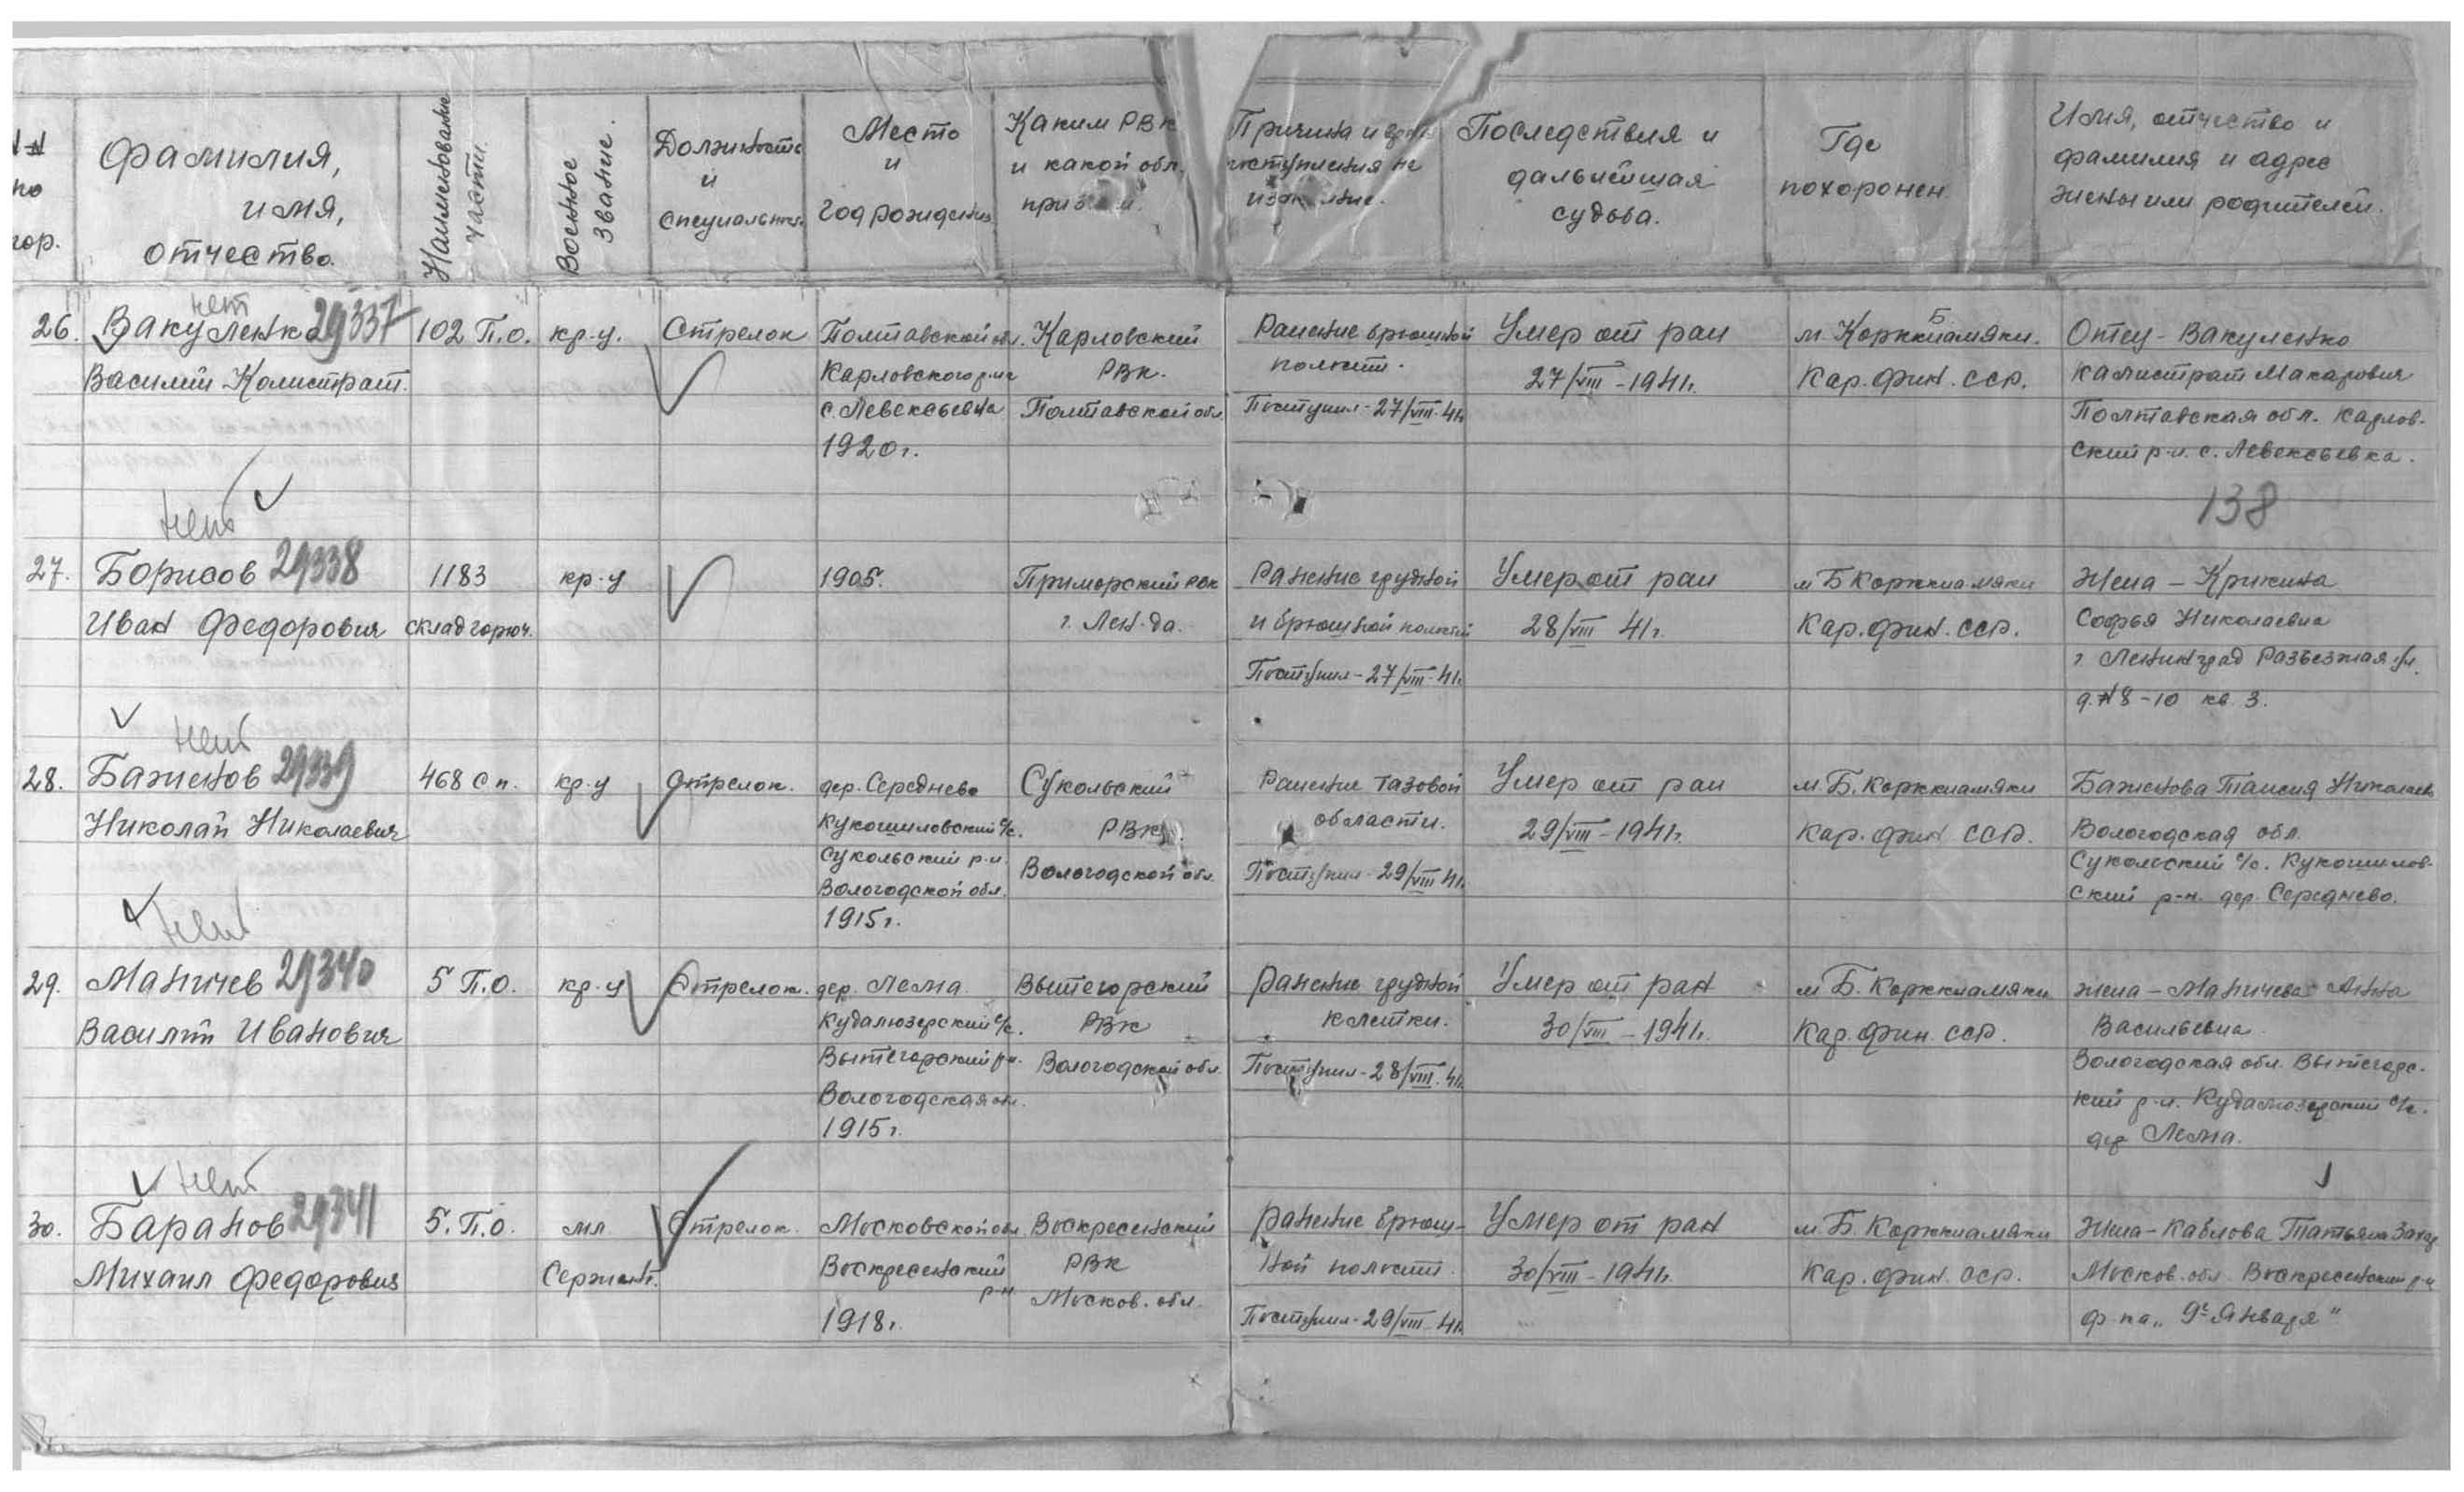 №№ по пор.
Фамилия, имя, отчество.
Наименование части.
Военное звание.
Должность и специальность.
Место и год рождения
Каким РВК и какой обл.
Последствия и дальнейшая судьба.
Где похоронен
Имя, отчество и фамилия и адрес жены или родителей.
26. Вакуленко 29337 нет
Василий Калистрат.
102 П.О.
кр-ц.
Стрелок
Полтавской обл.
Карловского р-на
1920г.
Карловский
РВк.
Полтавской обл.
Ранение брюшной
полости.
Поступил-27/VIII-41г.
Умер от ран
27/VIII-1941г.
м. Б Корккиамяки.
Кар. Фин. ССР.
Отец - Вакуленко
Калистрат Макарович
Полтавская обл. Карлов-
ский р-н. с. Левексьевка.
138
нет
27. Борисов 29338
Иван Федорович
1183
склад горюч.
кр-ц
1905.
Приморский РВК
г. Лен-да.
Ранение грудной
и брюшной полостей
Поступил-27/VIII-41г.
Умер от ран
28/VIII 41г.
м Б Корккиамяки
Кар. Фин. ССР.
Жена - Крикина
Софья Николаевна
г. Ленинград Разъезжая ул.
д.№8-10 кв. 3.
нет
28. Баженов 29339
Николай Николаевич
468 сп.
кр-ц
Стрелок.
дер. Середнево
Кукошиловский с/с.
Сукольский р-н.
Вологодской обл.
1915г.
Сукольский
РВк.
Вологодской обл.
Ранение тазовой
области.
Поступил-29/VIII 41г.
Умер от ран
29/VIII-1941г.
м. Б. Корккиамяки
Кар. Фин ССР.
Баженова Таисия Николаев
Вологодская обл.
Сукольский с/с. Кукошилов-
ский р-н. дер. Середнево.
нет
29. Маничев 29340
Василий Иванович
5 П.О.
кр-ц
Стрелок.
дер. Лема
Кудалюзерский с/с.
Вытегорский р-н.
Вологодская обл.
1915г.
Вытегорский
РВк
Вологодской обл.
Ранение грудной
клетки.
Поступил-28/VIII. 41г.
Умер от ран
30/VIII-1941г.
м Б. Корккиамяки
Кар. Фин. ССР.
Жена - Маничева Анна
Васильевна.
Вологодская обл. Вытегорс-
кий р-н. Кудалюзерский с/с.
дер Лема.
нет
30. Баранов 29341
Михаил Федорович
5. П.О.
мл
Сержант.
Стрелок.
Московской обл.
Воскресенский
р-н
1918г.
Воскресенский
РВК
Москов. обл.
Ранение брюш-
ной полости.
Поступил-29/VIII-41г.
Умер от ран
30/VIII-1941г.
м. Б. Корккиамяки
Кар. Фин. ССР.
Жена - Кавлова Татьяна Захар
Москов. обл. Воскресенский р-н
ф-ка "9е Января"